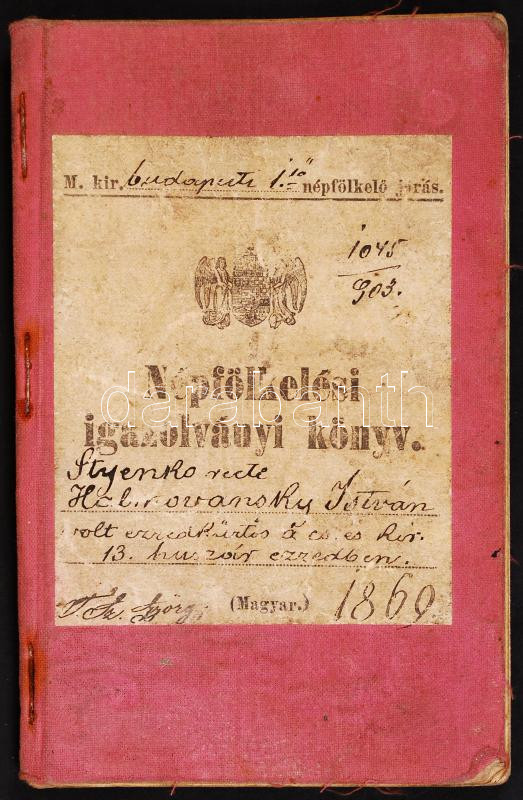 M. kir. budapesti 1.ső népfölkelő járás.
1045
903.
Népfölkelési
igazolványi könyv.
darabanth
Styenko recte
István
volt ezredkürtös a cs. es kir.
13. huszár ezredben.
(Magyar.) 1869